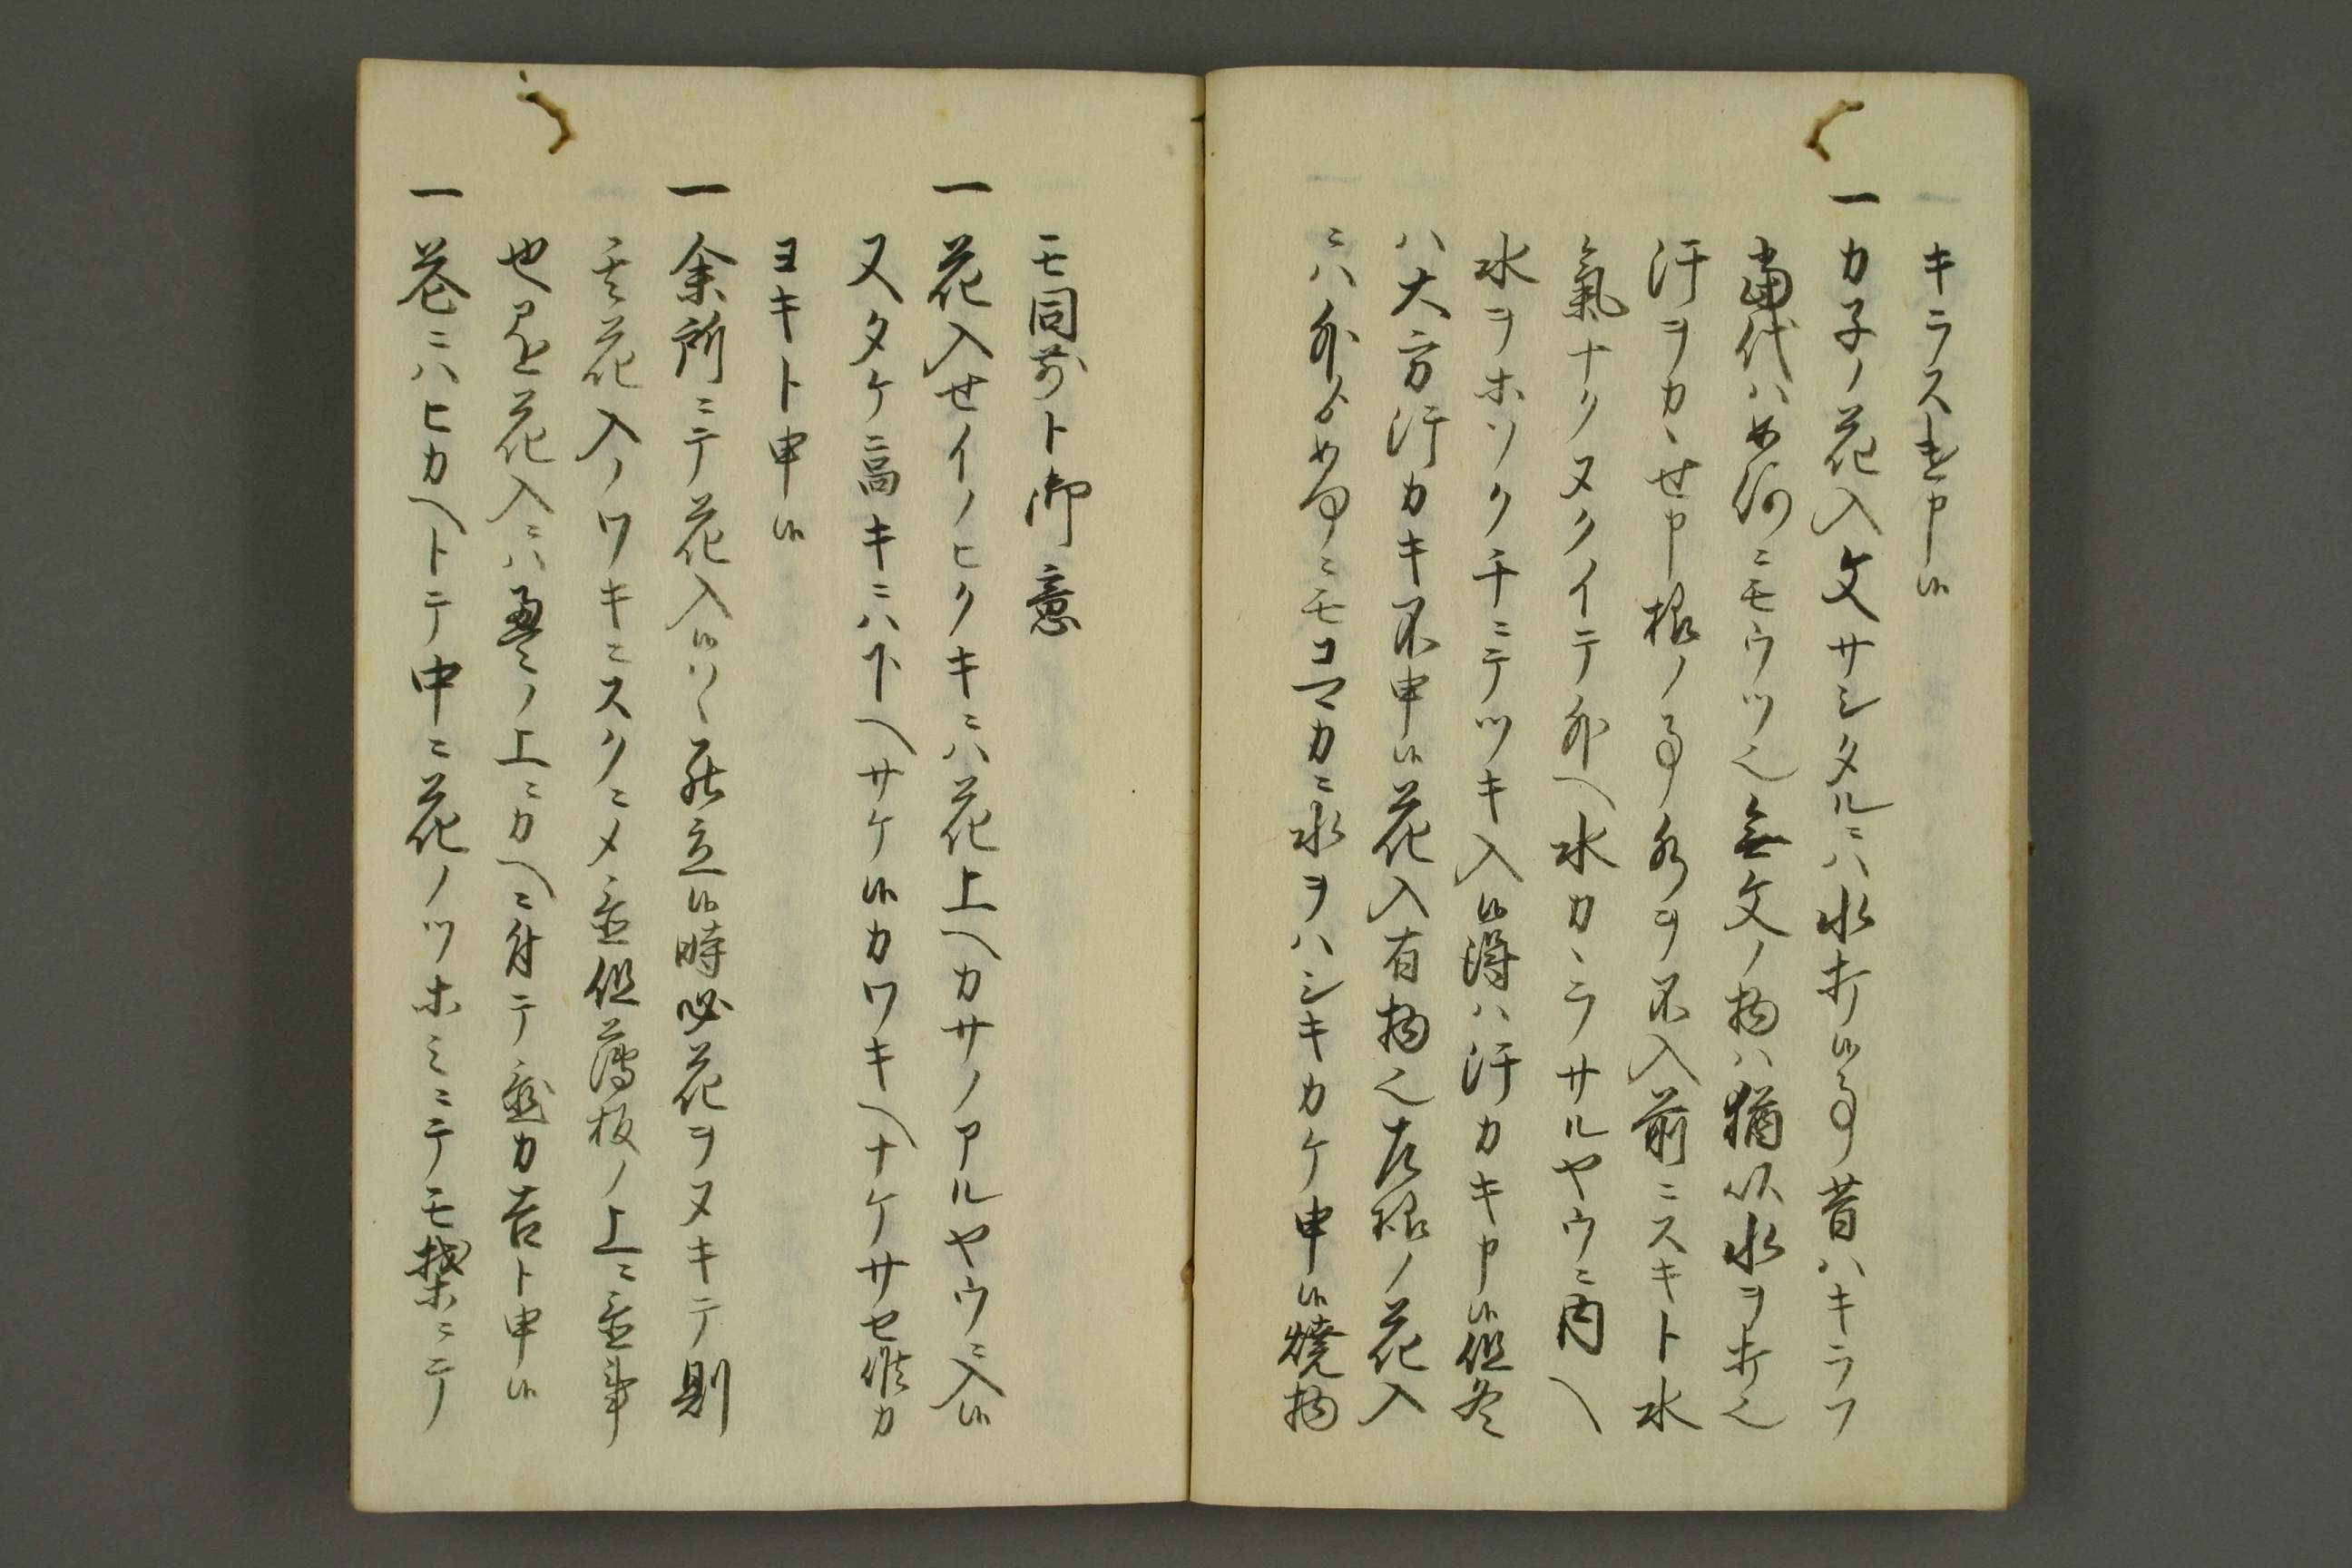 キラス共申候
一カ子ノ花入文サシタルニハ水打候事昔ハキラフ
當代ハ如何ニモウツ也無文ノ物ハ猶以水ヲ打也
汗ヲカヽせ申様ノ事糸ヲ不入前ニスキト水
氣ナクヌクイテ外ヘ水カヽラサルヤウニ内ヘ
水ヲホソクチニテツキ入候得ハ汗カキ申候但冬
ハ大方汗カキ不申候花入有物也左様ノ花入
ニハ外ゟ如何ニモコマカニ水ヲハシキカケ申候焼物
モ同前ト御意
一花入せイノヒクキニハ花上ヘカサノアルヤウニ入候
又タケ高キニハ下ヘサケ候カワキヘナケサセ候カ
ヨキト申候
一余所ニテ花入候ハヽ罷立候時必花ヲヌキテ則
其花入ノワキニスクニメ置但薄板ノ上ニ置事
也又花入ニハ畳ノ上ニカヘニ付テ置カ吉ト申候
一巻ニハヒカヘトテ中ニ花ノツホミニテモ葉ニテ